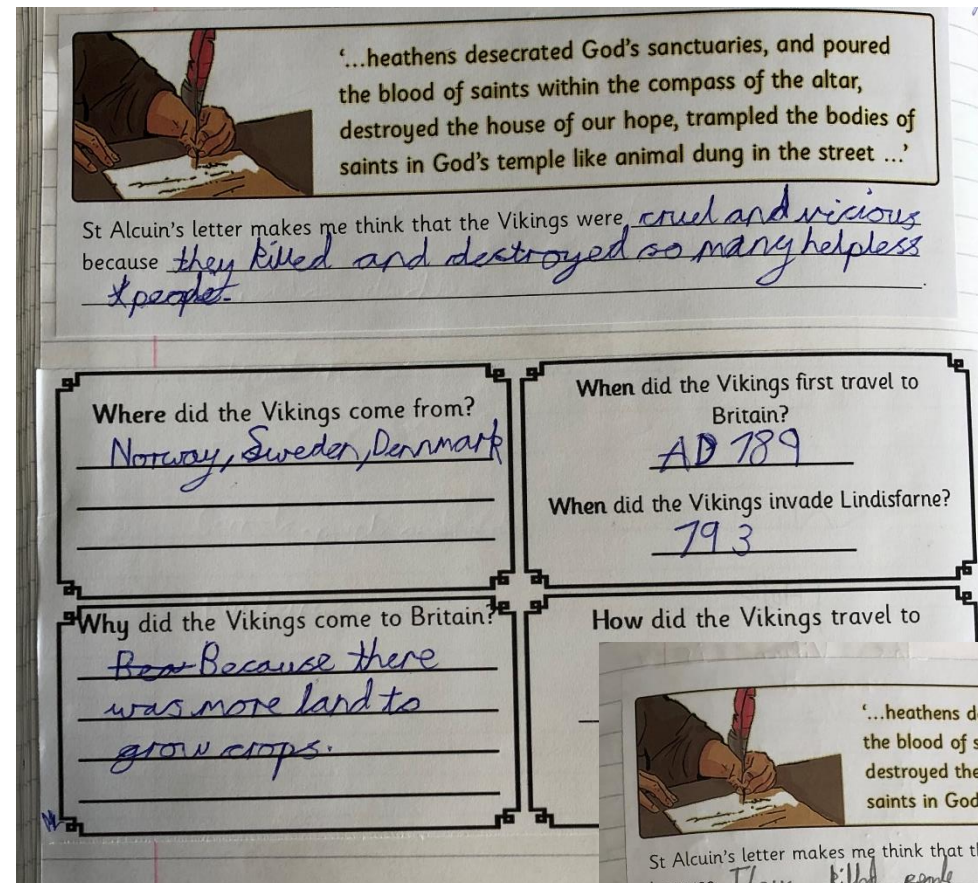 ‘…heathens desecrated God’s sanctuaries, and poured
the blood of saints within the compass of the altar,
destroyed the house of our hope, trampled the bodies of
saints in God’s temple like animal dung in the street …’
St Alcuin’s letter makes me think that the Vikings were cruel and vicious
because they killed and destroyed so many helpless
people.
Where did the Vikings come from?
Norway, Sweden, Dennmark
When did the Vikings first travel to
Britain?
AD 789
When did the Vikings invade Lindisfarne?
793
Why did the Vikings come to Britain?
Because there
was more land to
grow crops.
How did the Vikings travel to
‘…heathens d
the blood of s
destroyed the
saints in God
St Alcuin’s letter makes me think that th
They killed people